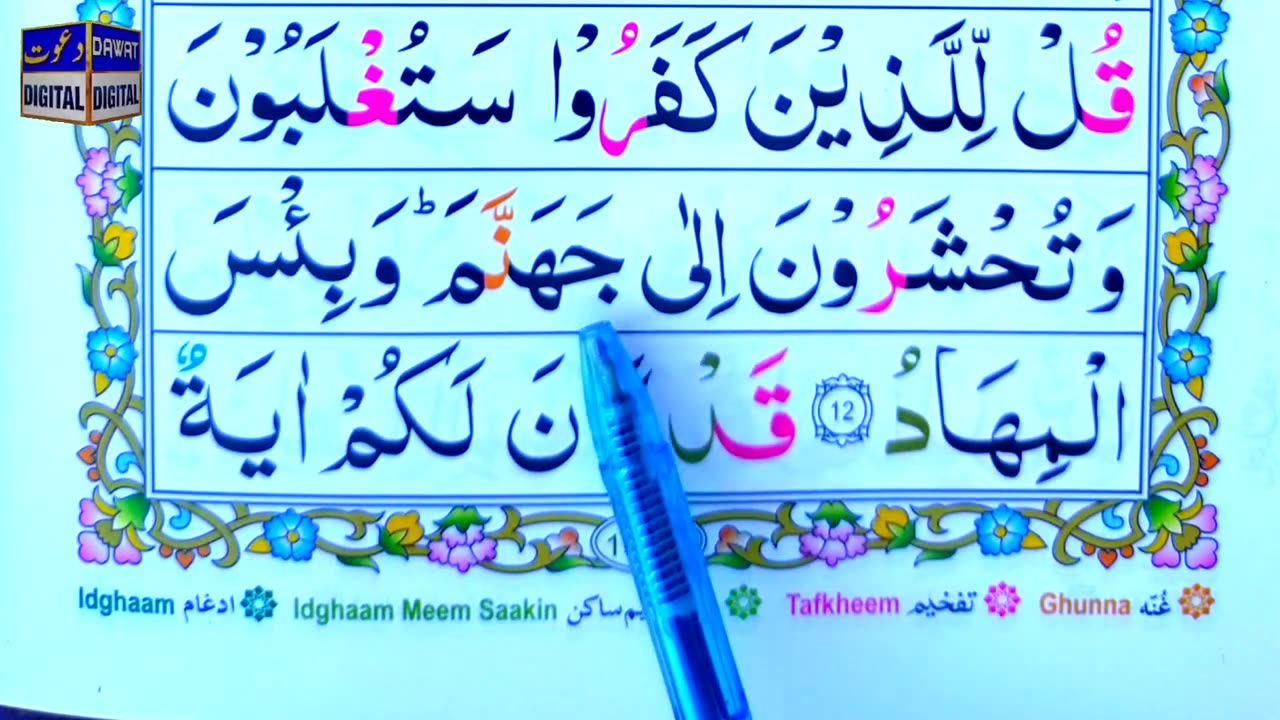 دعوت DAWAT
DIGITAL DIGITAL
قُلْ لِّلَّذِيْنَ كَفَرُوْا سَتُغْلَبُوْنَ
وَتُحْشَرُوْنَ اِلٰى جَهَنَّمَ ؕ وَبِئْسَ
الْمِهَادُ 12 قَدْ نَ لَكُمْ اٰيَةٌ
Idghaam ادغام Idghaam Meem Saakin يم ساكن Tafkheem تفخيم Ghunna غُنّه